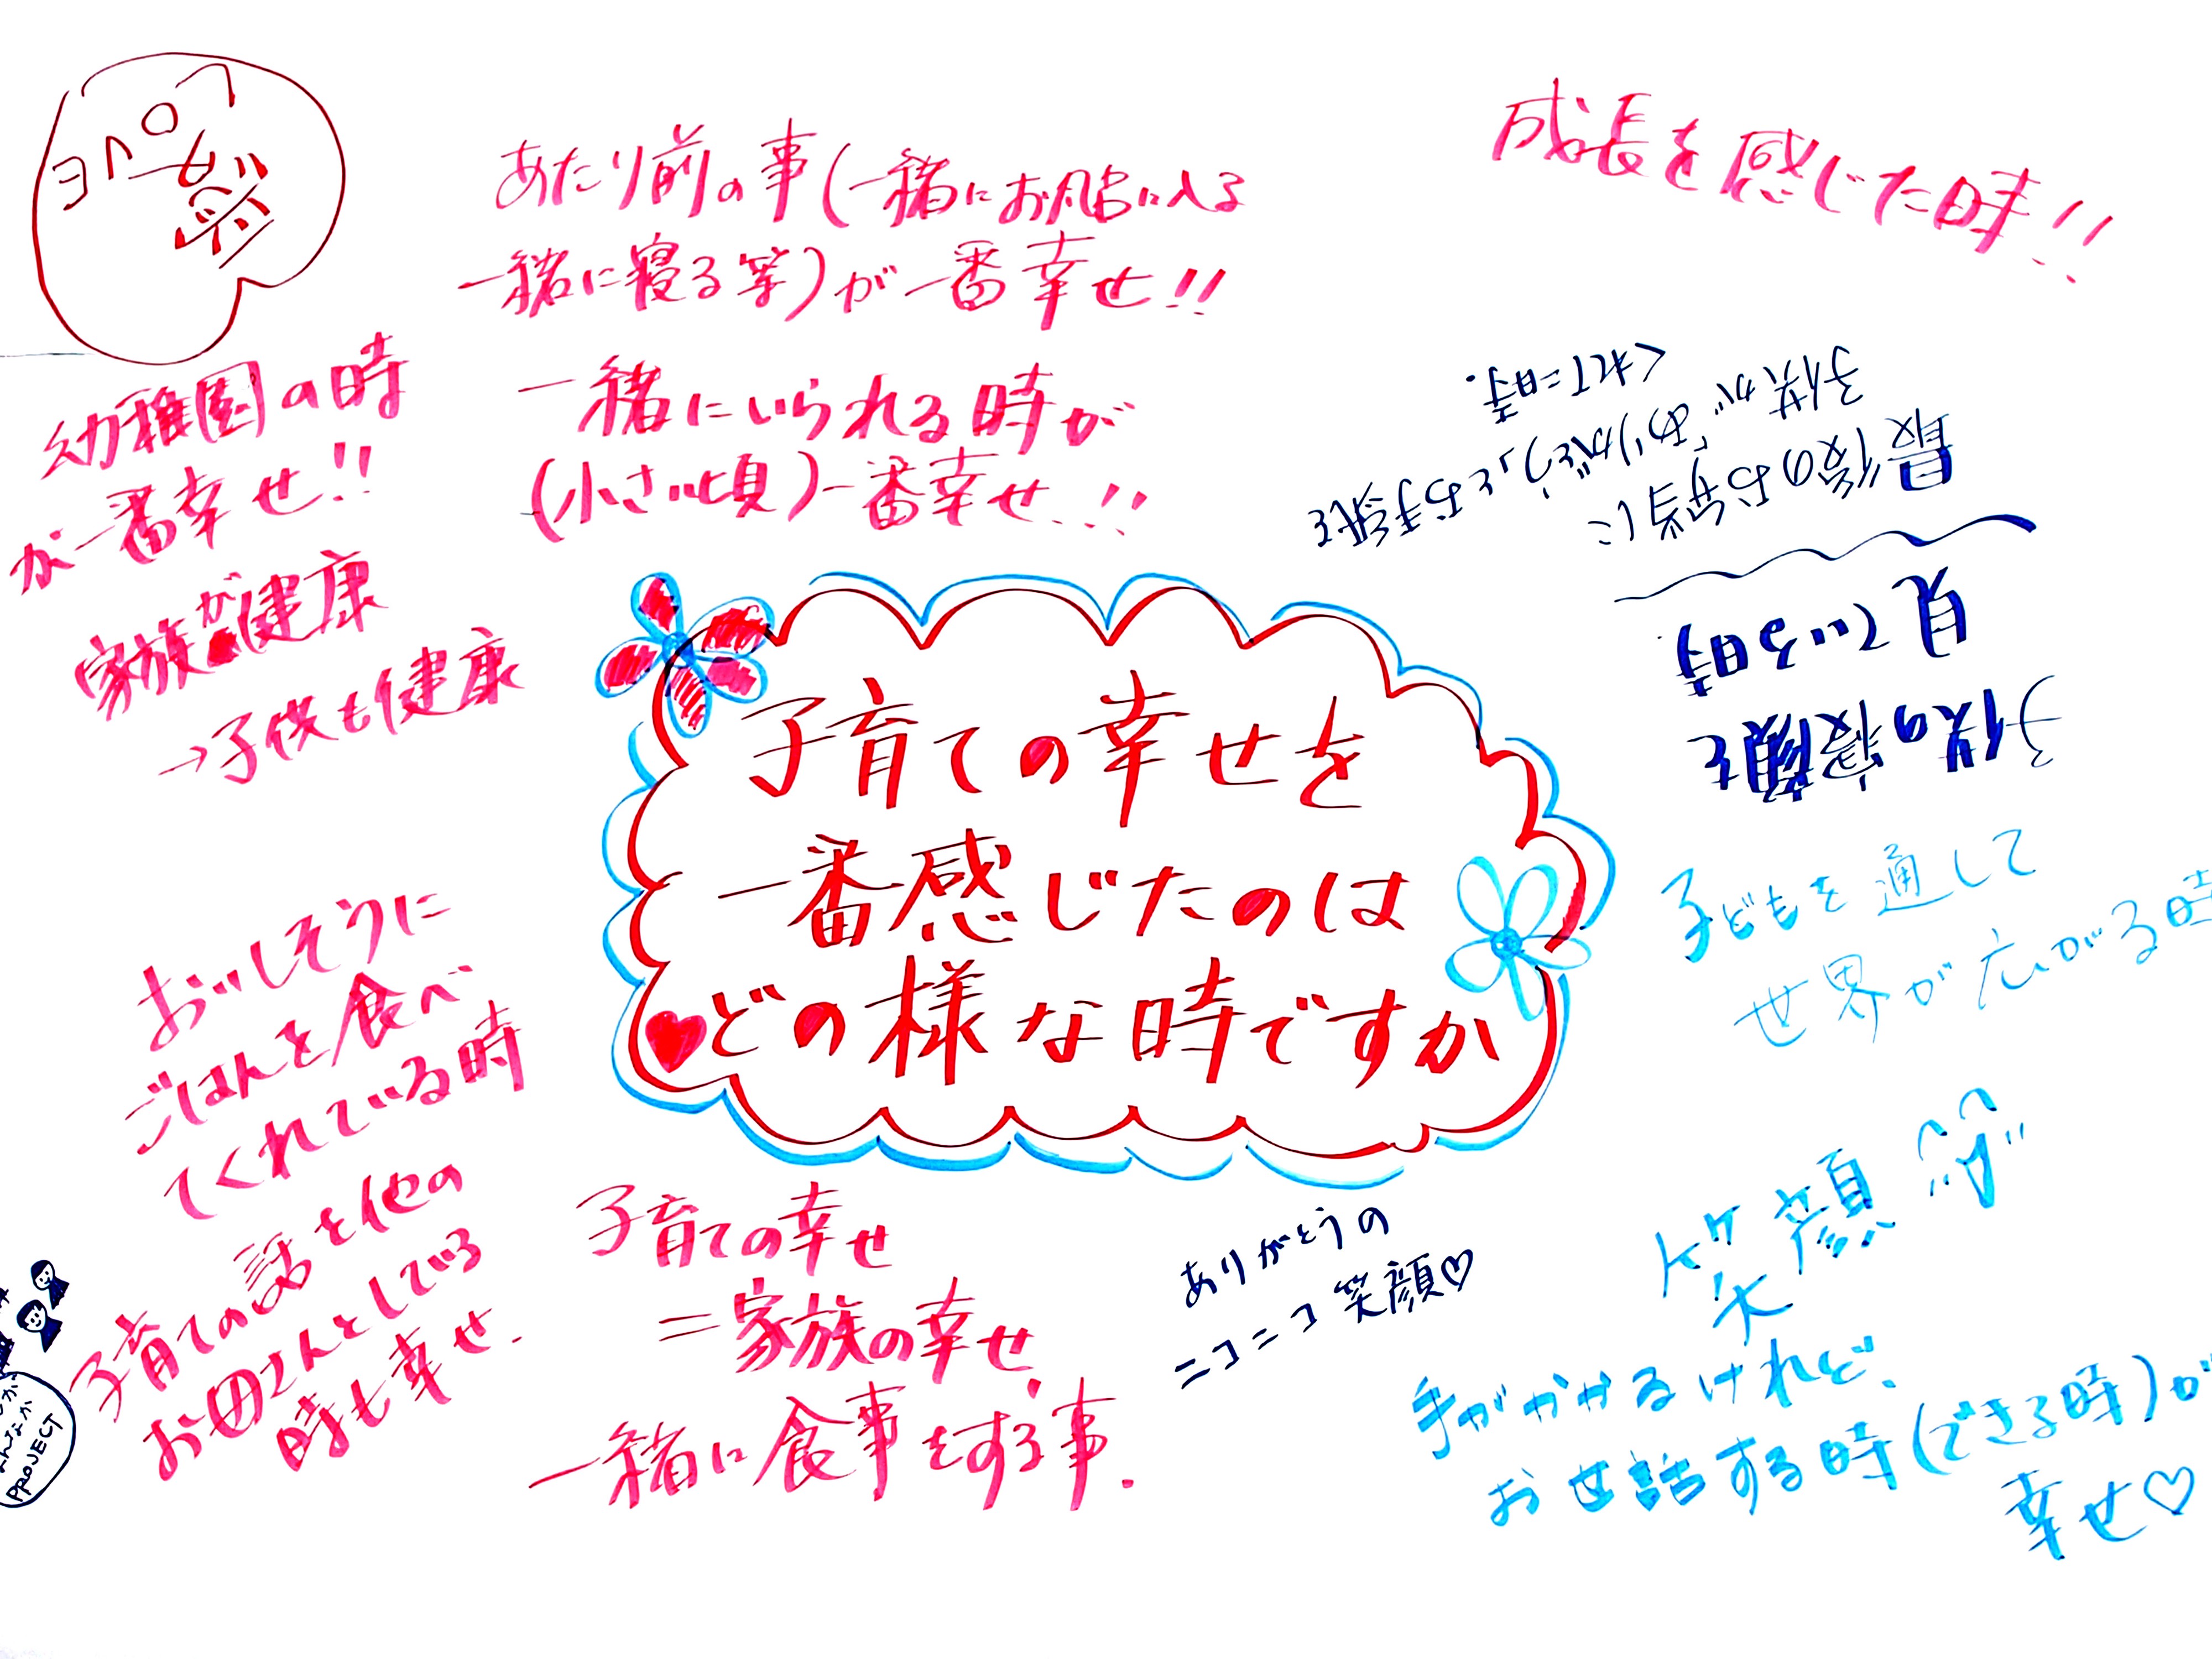 あたり前の事(一緒にお風呂に入る
一緒に寝る等)が一番幸せ!!
成長を感じた時!!
一緒にいられる時が
(小さい頃)一番幸せ!!
幼稚園の時
が一番幸せ!!
家族が健康
→子供も健康
最後のお弁当に
子供が「ありがとう」とお手紙を
くれた時.
子供の寝顔を
見ている時
子育ての幸せを
一番感じたのは
どの様な時ですか
子どもを通して
世界が広がる時
おいしそうに
ごはんを食べ
てくれている時
子育ての話を他の
お母さんとしている
時も幸せ.
子育ての幸せ
=家族の幸せ
一緒に食事をする事.
ありがとうの
ニコニコ笑顔♡
笑顔
手がかかるけれど、
お世話する時(できる時)が
幸せ♡
PROJECT